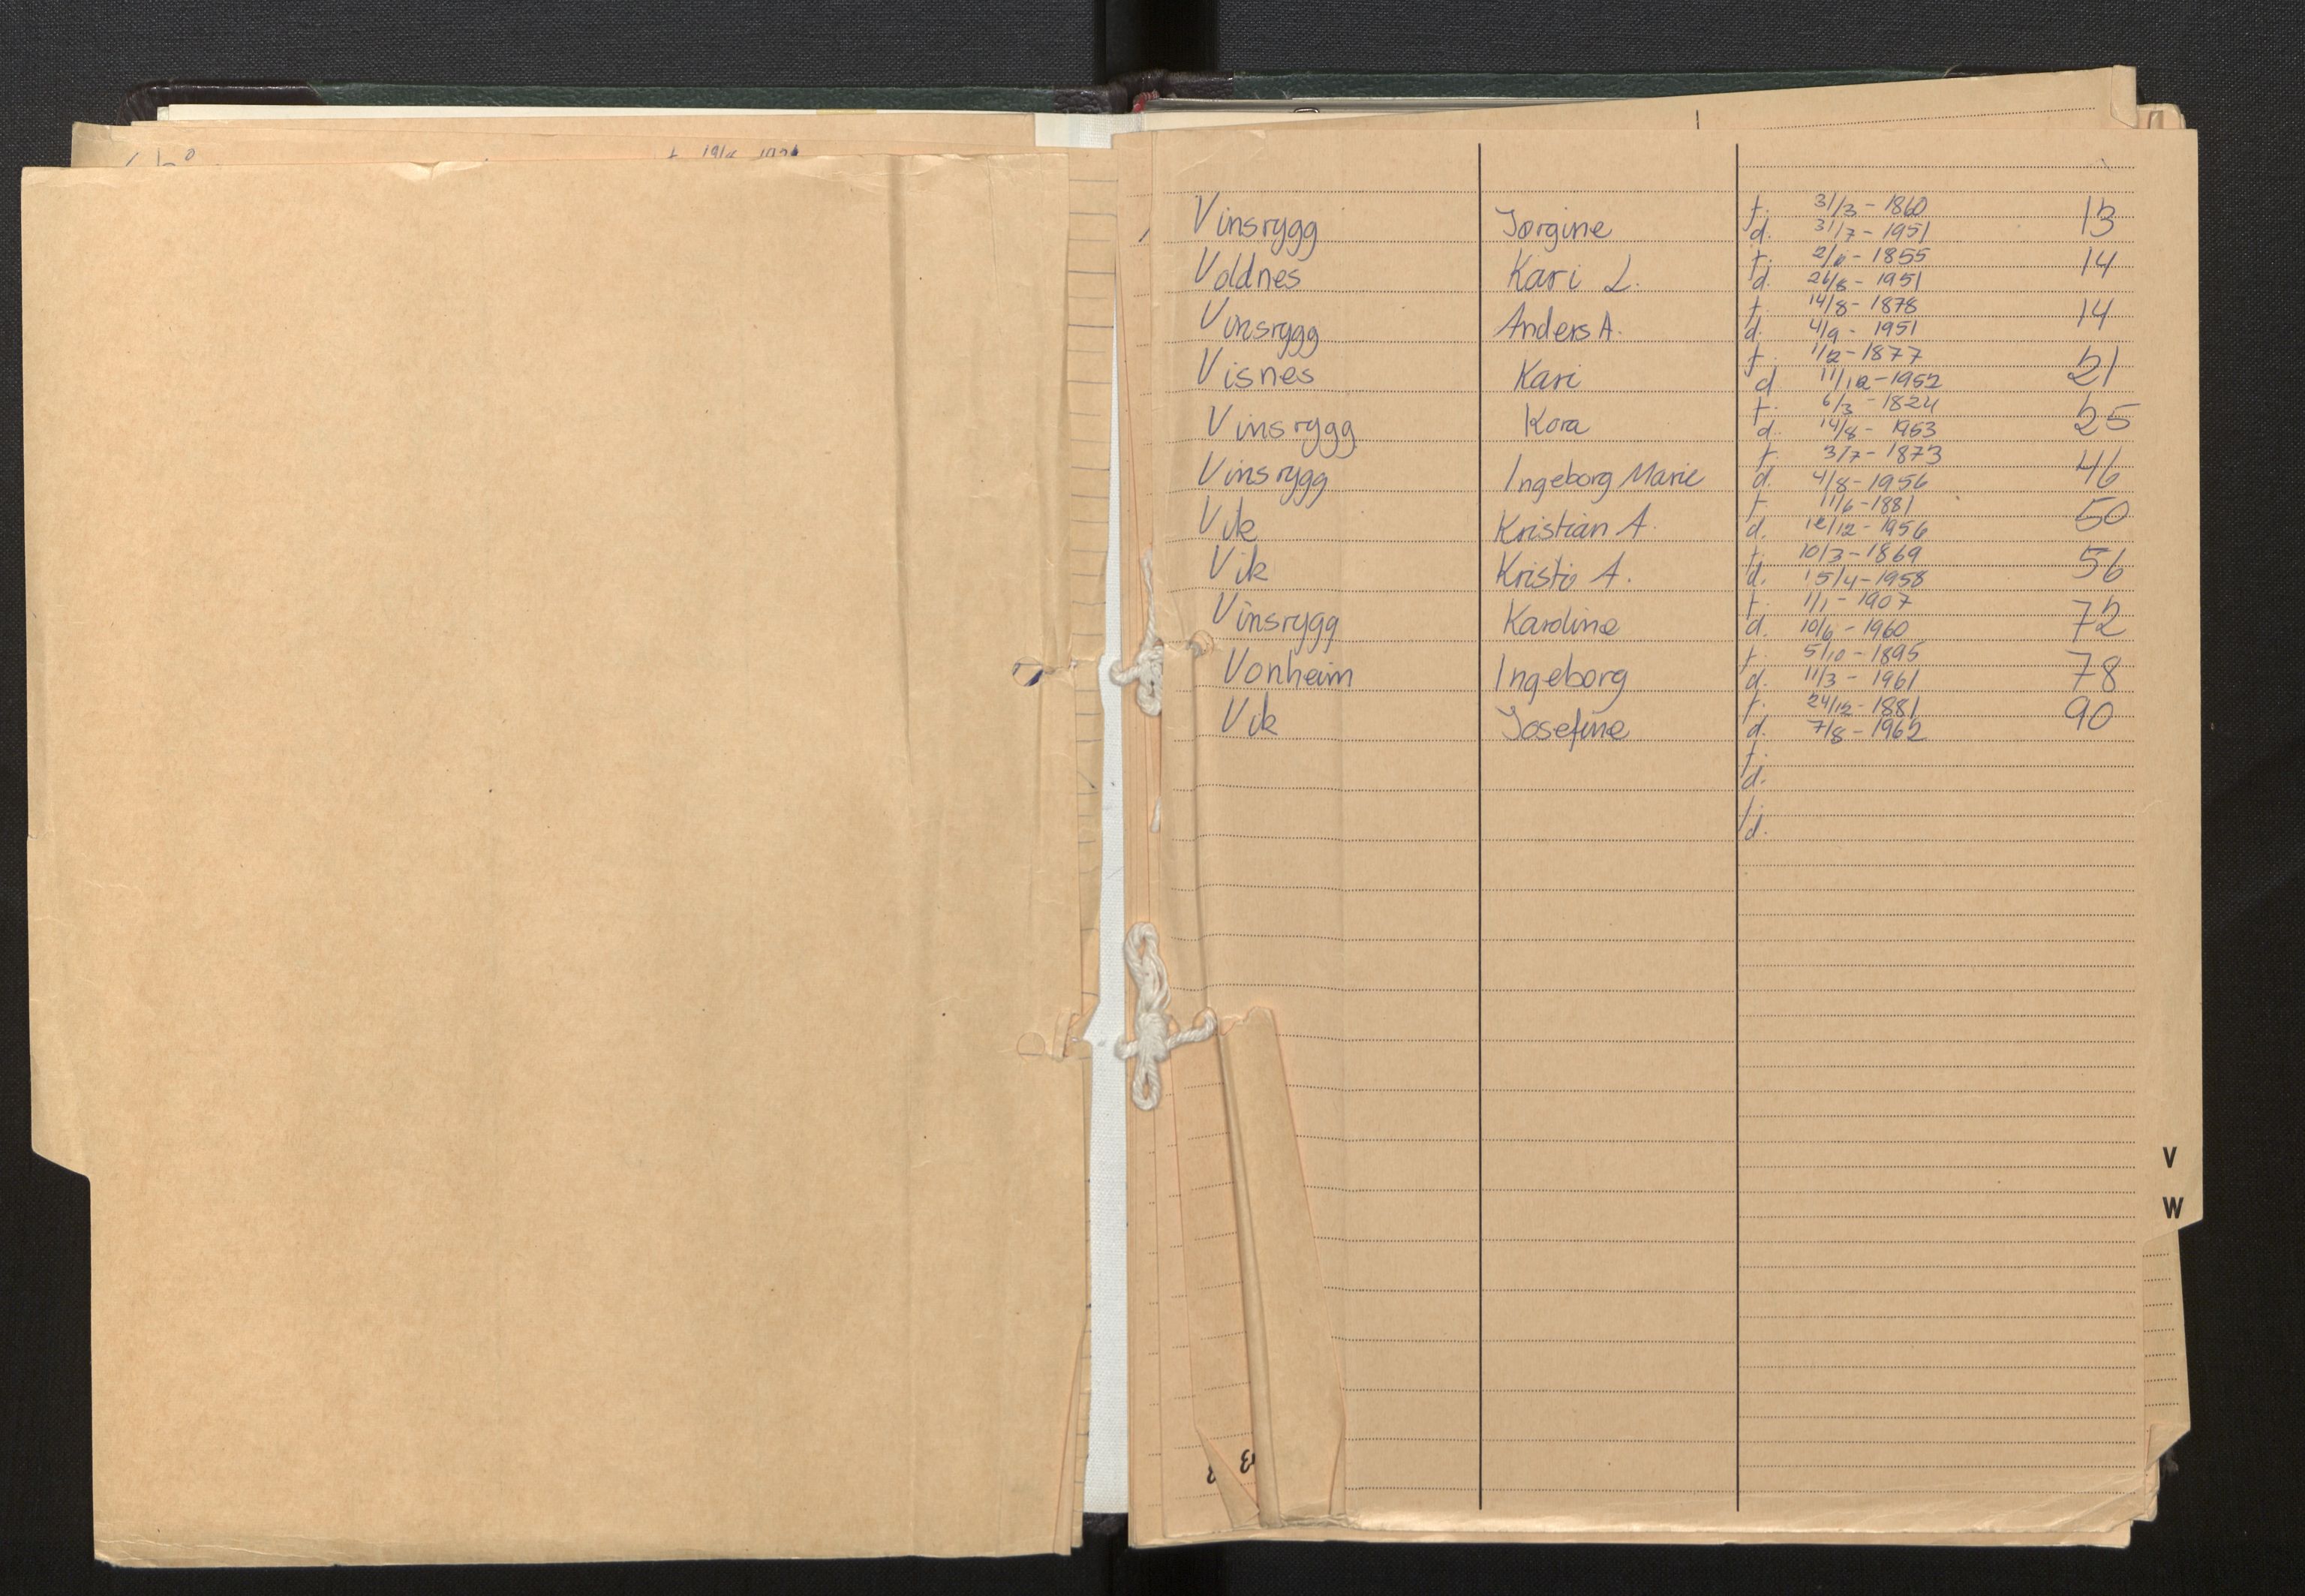 f. 31/3 - 1860
Vinsrygg Jørgine 13
d. 31/7 - 1951
f. 1855
Voldnes Kari L. 14
d. 26/8 - 1951
f. 14/8 - 1878
Vinsrygg Anders A. 14
d. 4/9 - 1951
f. 1/12 - 1877
Visnes Kari 21
d 11/12 - 1952
f. 6/3 - 1824
Vinsrygg Kora 25
d. 14/8 - 1953
f. 3/7 - 1873
Vinsrygg Ingeborg Marie 46
d. 4/8 - 1956
f. 11/6 - 1881
Vik Kristian A. 50
d. 12/12 - 1956
f. 10/3 - 1869
Vik Kristi A. 56
d. 15/4 - 1958
f. 1/1 - 1907
Vinsrygg Karoline 72
d. 10/6 - 1960
f. 5/10 - 1895
Vonheim Ingeborg 78
d. 11/3 - 1961
f. 24/12 - 1881
Vik Josefine 90
d. 7/8 - 1962
f.
d.
f.
d.
V
W